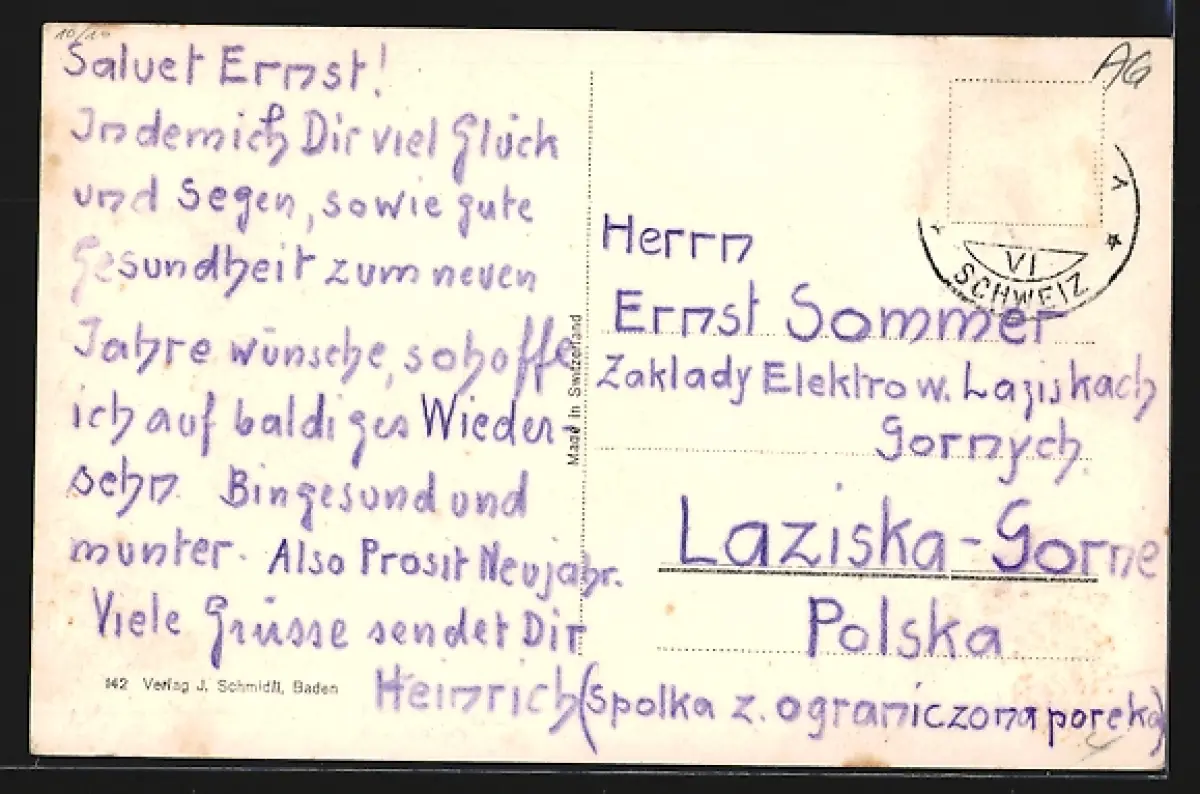 10/10
Saluet Ernst!
Indem ich Dir viel Glück
und Segen, sowie gute
Gesundheit zum neuen
Jahre wünsche, so hoffe
ich auf baldiges Wieder-
sehn. Bin gesund und
munter. Also Prosit Neujahr.
Viele Grüsse sendet Dir
Heinrich
142 Verlag J. Schmidli, Baden
Made in Switzerland
AG
VI
SCHWEIZ
Herrn
Ernst Sommer
Zaklady Elektro w. Laziskach
Gornych.
Laziska-Gorne
Polska
(Spolka z. ograniczona poreka)